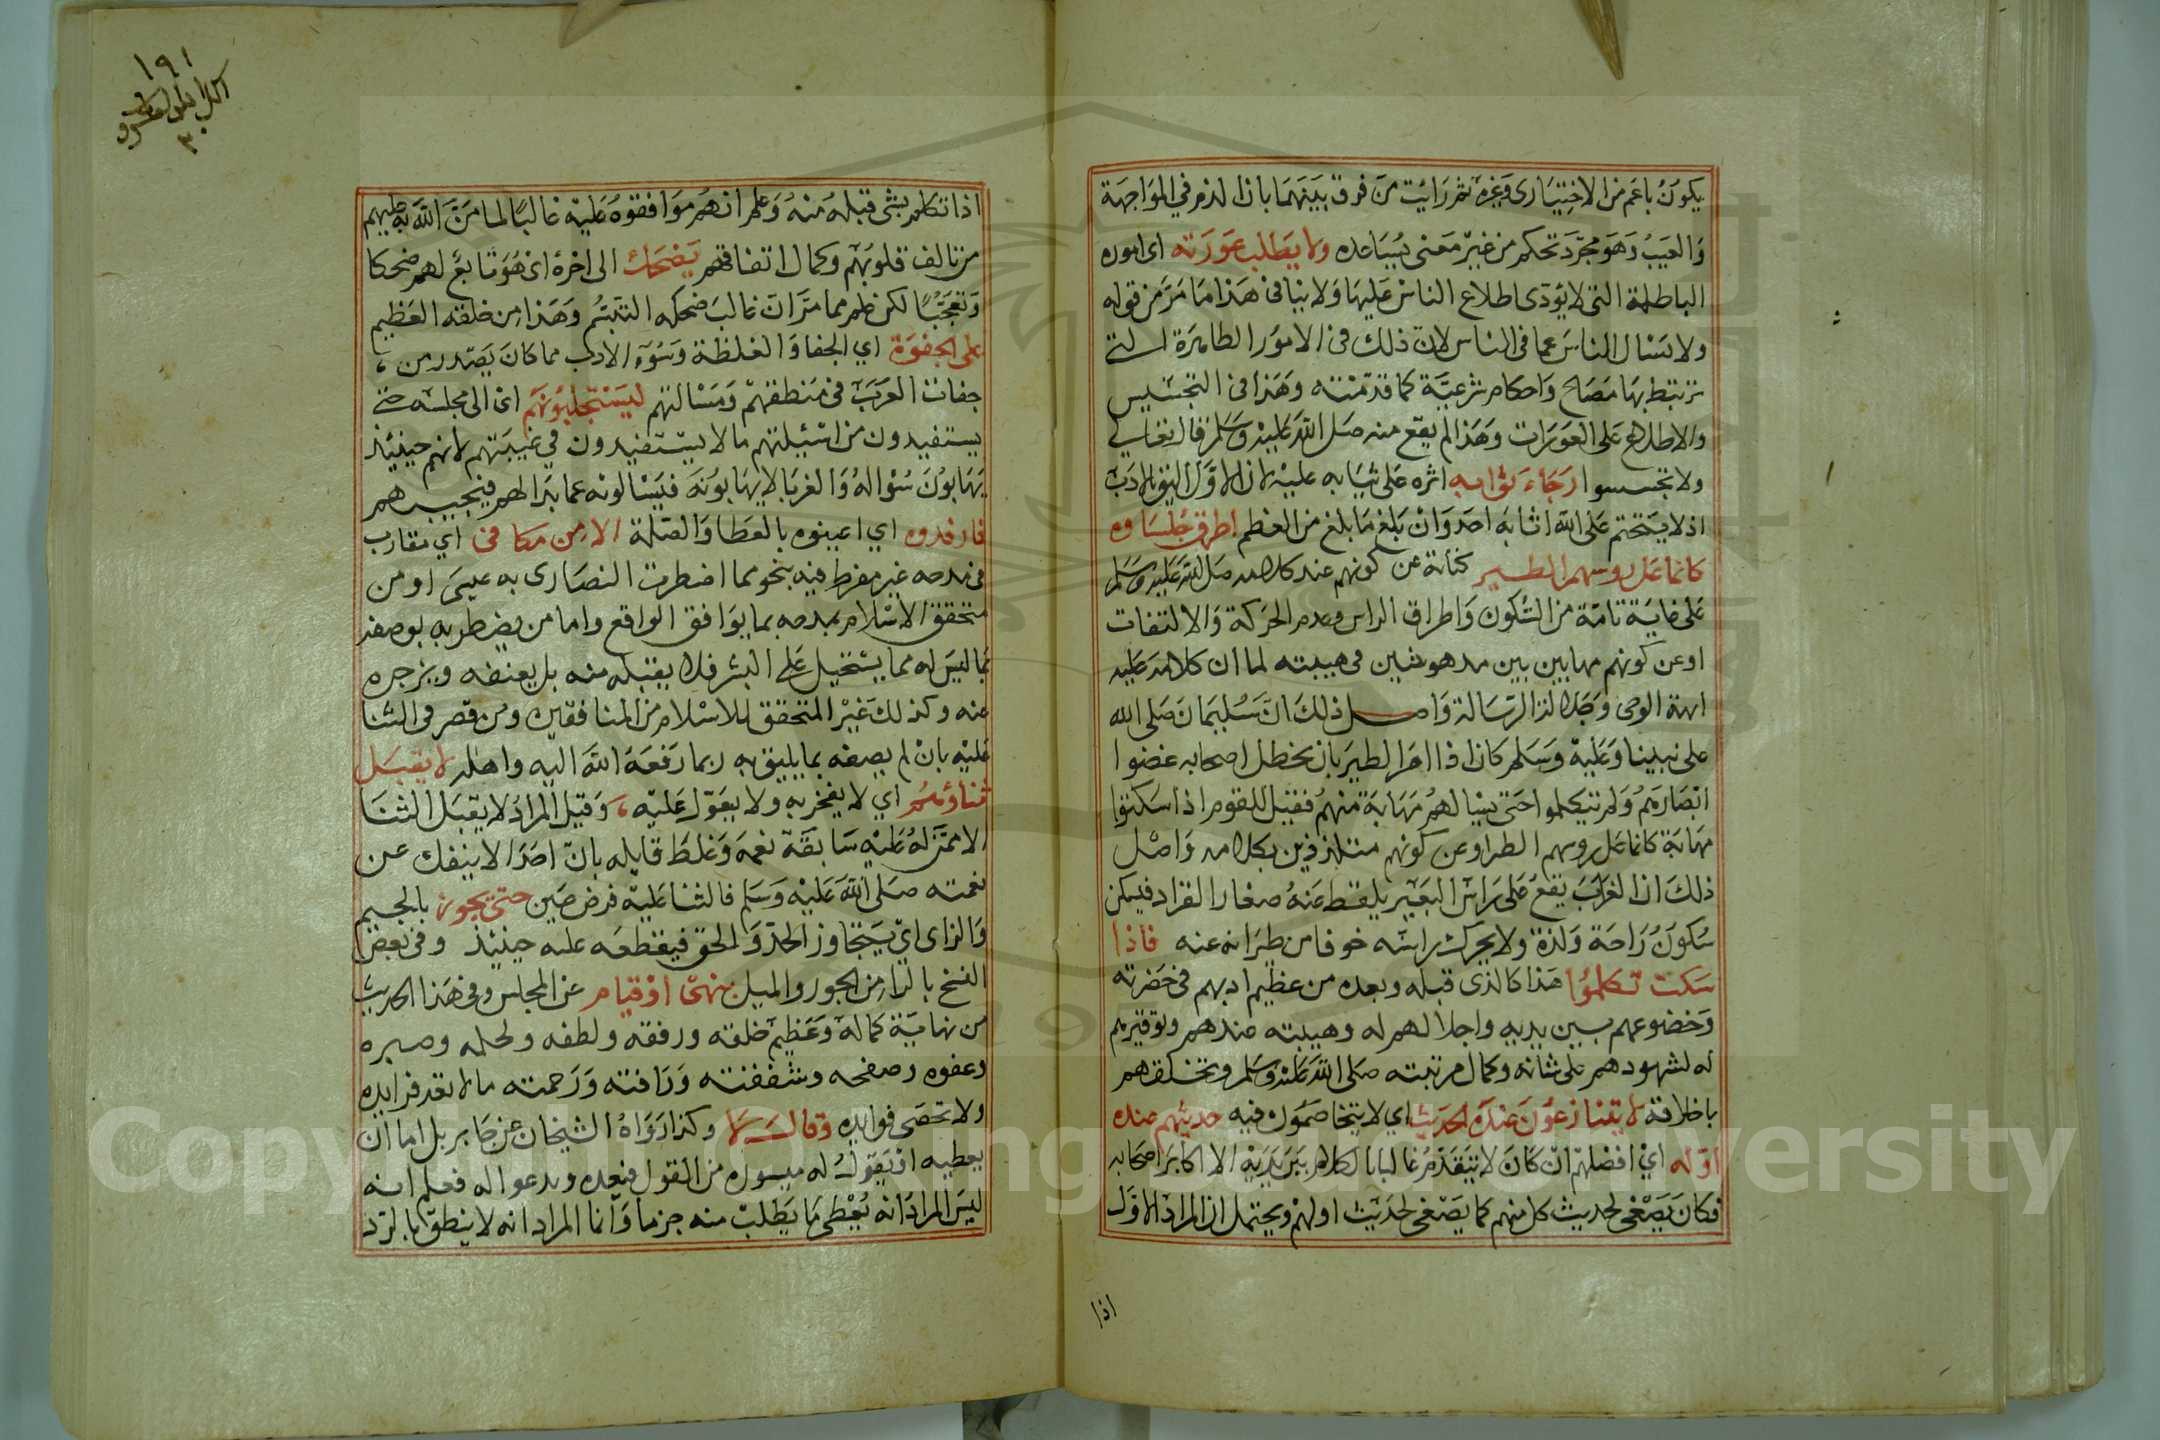 يكون باعم من الاختياري وغيره ثم رايت من فرق بينهما بان الذم في المواجهة
والعيب وهو مجرد تحكم من غير معنى يساعده ولا يطلب عورته اي اموره
الباطلة التي لا يؤدي اطلاع الناس عليها ولا ينافي هذا ما مر من قوله
ولا يسئال الناس عما في الناس لان ذلك في الامور الظاهرة التي
ترتبط بها مصالح واحكام شرعية كما قدمته وهذا في التجسيس
والاطلاع على العورات وهذا لم يقع منه صلى الله عليه وسلم قال تعالى
ولا تجسسوا رجاء ثوابه اثره على ثيابه عليه لان الاول اليق بالادب
اذ لا يتحتم على الله اثابة احد وان بلغ ما بلغ من العظم اطرق جلساوه
كانما على روسهم الطير كناية عن كونهم عند كلامه صلى الله عليه وسلم
على غاية تامة من السكون واطراق الراس وعدم الحركة والالتفات
او عن كونهم مهابين بين مدهوشين في هيبته لما ان كلامه عليه
ابهة الوحي وجلالة الرسالة واصل ذلك ان سليمان صلى الله
على نبينا وعليه وسلم كان اذا امر الطير بان يظل اصحابه غضوا
ابصارهم ولم يتكلموا حتى يسالهم مهابة منهم فقيل للقوم اذا سكتوا
مهابة كانما على روسهم الطير او عن كونهم متلذذين بكلامه واصل
ذلك ان الغراب يقع على راس البعير يلقط منه صغار القراد فيسكن
سكون راحة ولذة ولا يحرك راسه خوفا من طيرانه عنه فاذا
سكت تكلموا هذا كالذي قبله وبعده من عظيم ادبهم في حضرته
وخضوعهم بين يديه واجلالهم له وهيبته عندهم وتوقيرهم
له لشهودهم على شانه وكمال مرتبته صلى الله عليه وسلم وتخلقهم
باخلاقه لا يتنازعون عنده الحديث اي لا يتخاصمون فيه حديثهم عنده
اوله اي افضلهم ان كان لا يتقدم غالبا بالكلام بين يديه الا اكابر اصحابه
فكان يصغي لحديث كل منهم كما يصغي لحديث اولهم ويحتمل ان المراد الاول
اذا
١٩١
٣٠
اذا تكلم بشئ قبله منه وعلم انهم موافقوه عليه غالبا لما من الله به عليهم
من تالف قلوبهم وكمال اتفاقهم يضحك الى اخره اي هو تابع لهم ضحكا
وتعجبا لكن ظهر مما مر ان غالب ضحكه التبسم وهذا من خلقه العظيم
على الجفوة اي الجفا والغلظة وسوء الادب مما كان يصدر من
جفات العرب في منطقهم ومسالتهم ليستجلبونهم اي الى مجلسه حتى
يستفيدون من اسئلتهم ما لا يستفيدون في غيبتهم لانهم حينئذ
يهابون سؤاله والغربا لا يهابونه فيسالونه عما بدا لهم فيجيبهم
فارفدوه اي اعينوه بالعطا والصلة الا من مكافى اي مقارب
في مدحه غير مفرط فيه بنحو مما اضطرت النصارى به عيسى او من
متحقق الاسلام بمدحه بما يوافق الواقع واما من يضطر به بوصفه
بما ليس له مما يستخيل على البشر فلا يقبله منه بل يعنفه ويزجره
عنه وكذلك غير المتحقق للاسلام من المنافقين ومن قصر في الثنا
عليه بان لم يصفه بما يليق به ربما رفعة الله اليه واهله لا يقبل
ثناؤهم اي لا يفخر به ولا يعول عليه، وقيل المراد لا يقبل الثنا
الا ممن له عليه سابقة نعمه وغلط قايله بان احدا لا ينفك عن
نعمته صلى الله عليه وسلم فالثنا عليه فرض عين حتى يجوز بالجيم
والزاى اي يتجاوز الحد والحق فيقطعه عليه حينئذ وفي بعض
النسخ بالرا من الجور والميل بنهي او قيام عن المجلس وفي هذا الحديث
من نهاية كماله وعظيم خلقه ورفقه ولطفه ولحلمه وصبره
وعفوه وصفحه وشفقته ورافته ورحمته ما لا تعد فرايده
ولا تحصى فوايده وقال لا وكذا رواه الشيخان عن جابر بل اما ان
يعطيه او يقول له ميسوره من القول فيعده ويدعو اله فعلم انه
ليس المراد انه يعطي ما يطلب منه جزما وانما المراد انه لا ينطق بالرد
Copyright © King Saud University